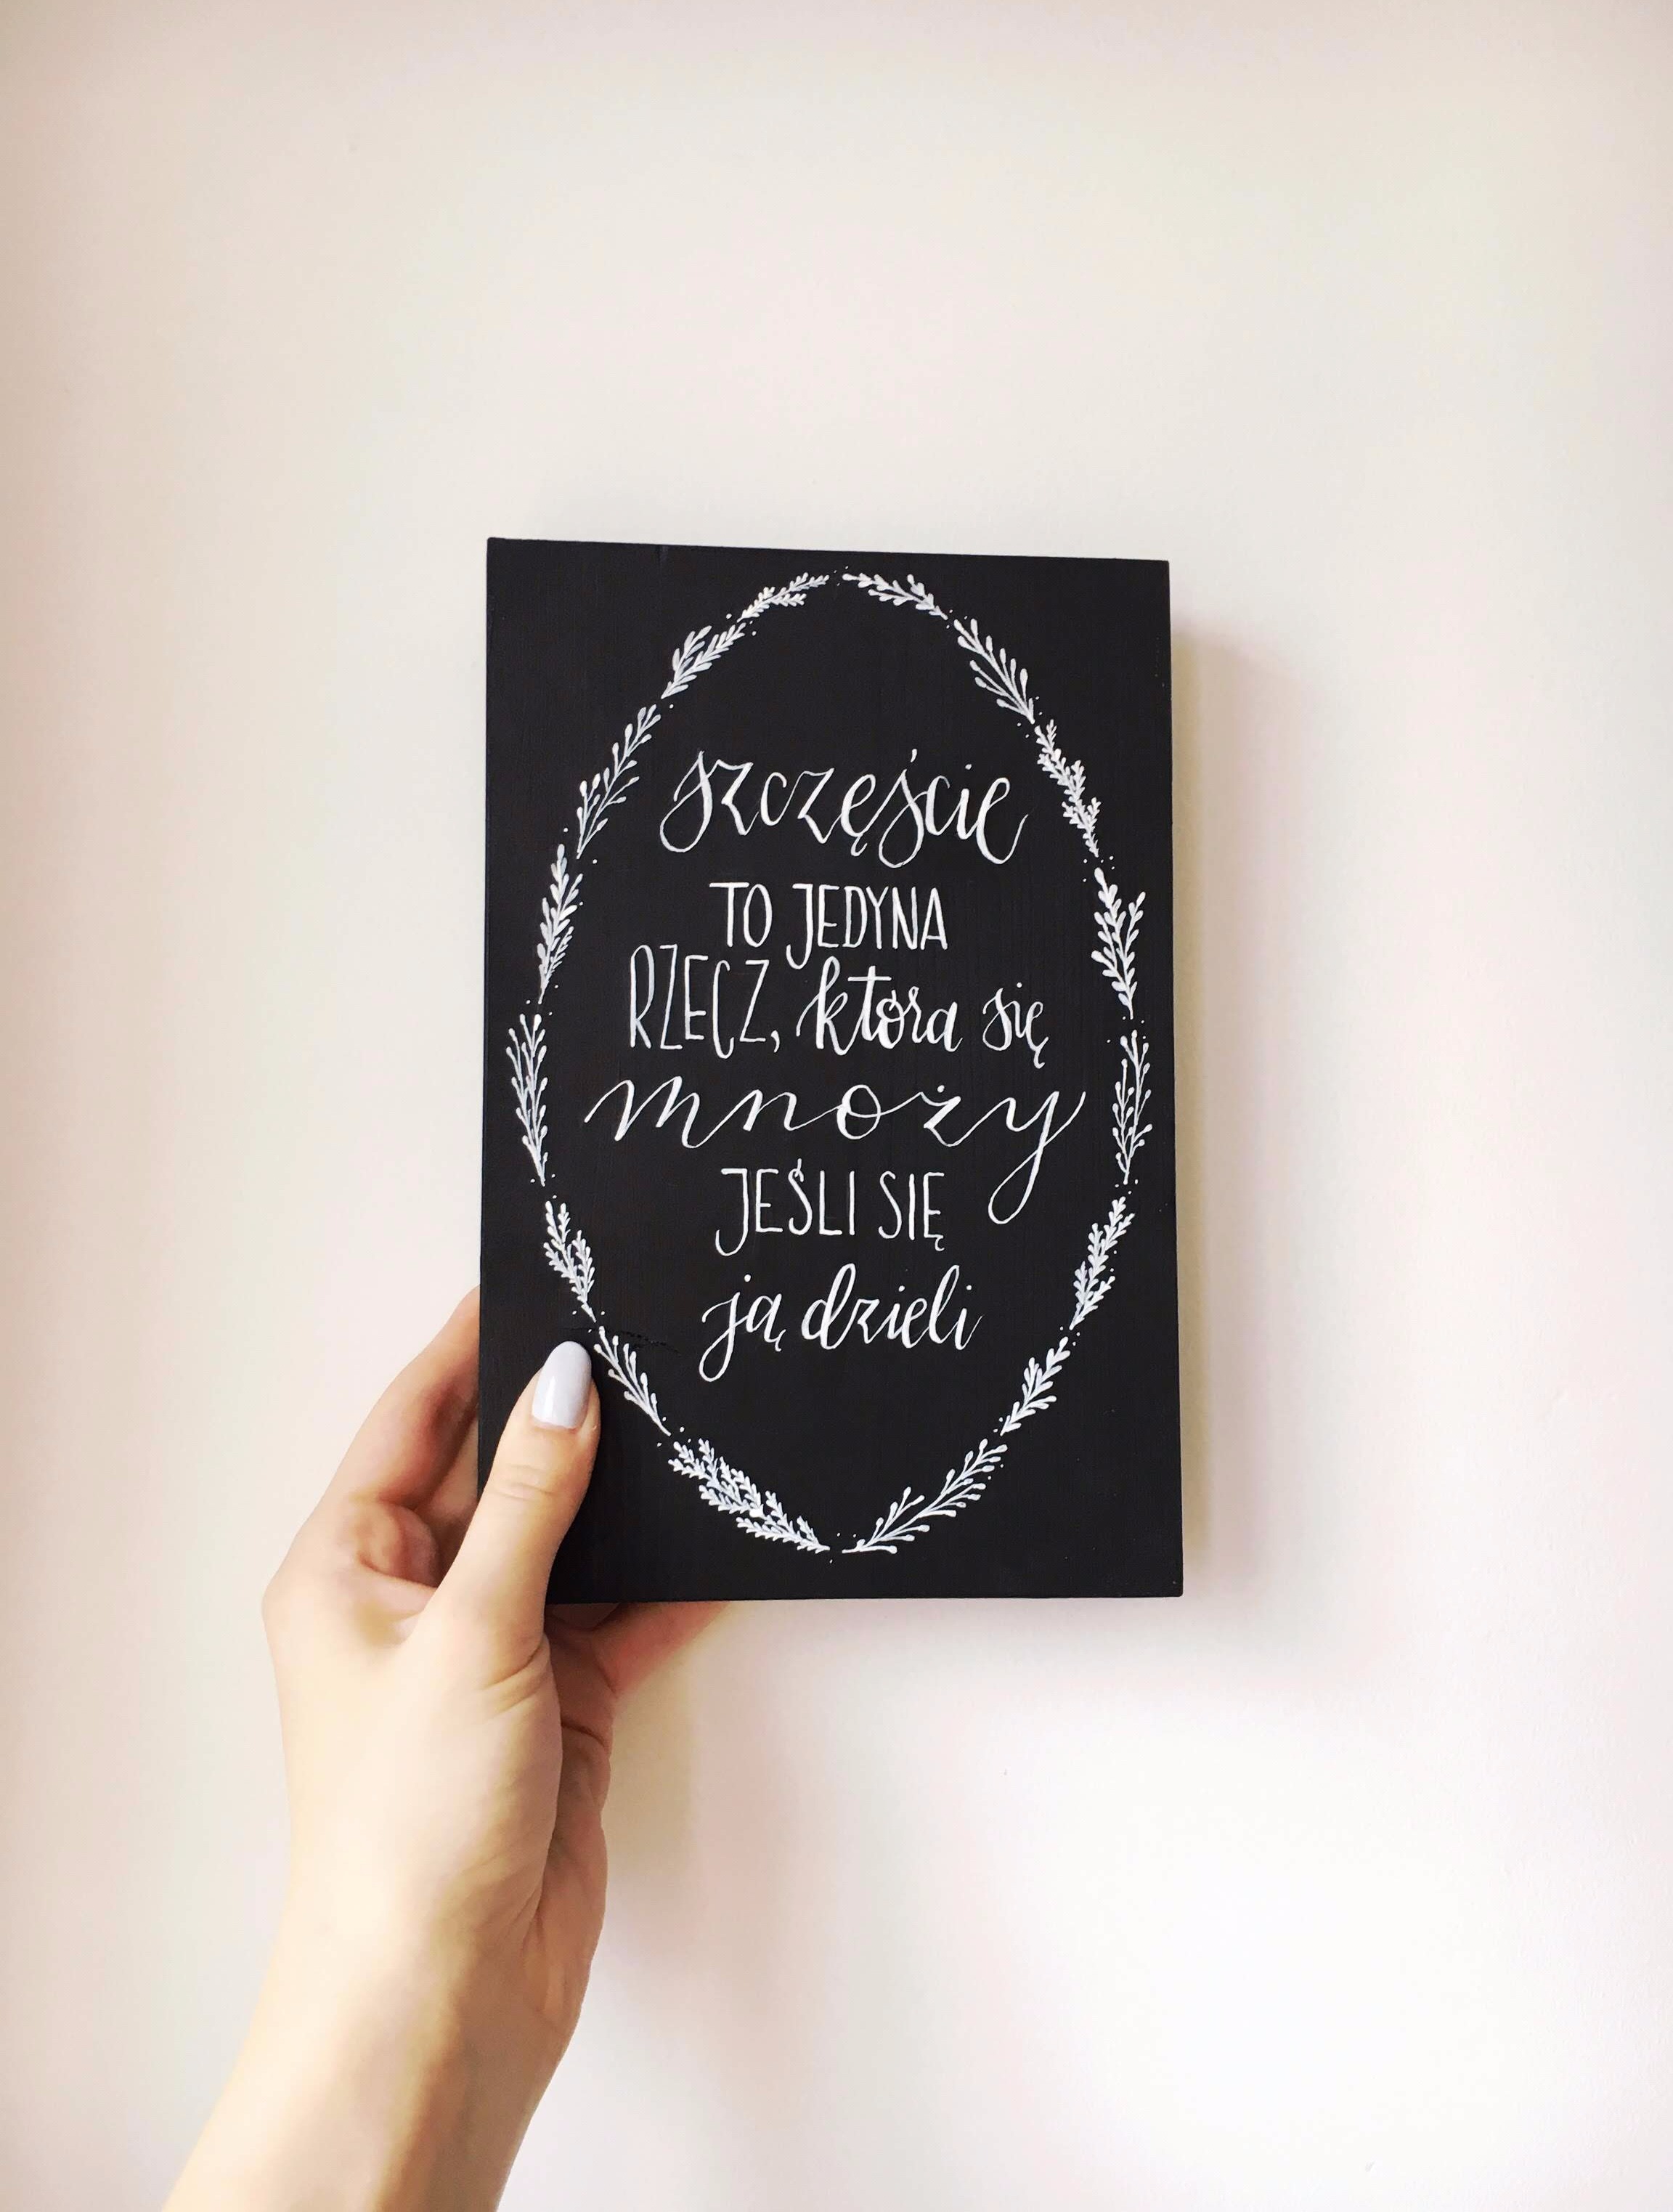 szczęście
TO JEDYNA
RZECZ, która się
mnoży
JEŚLI SIĘ
ją dzieli